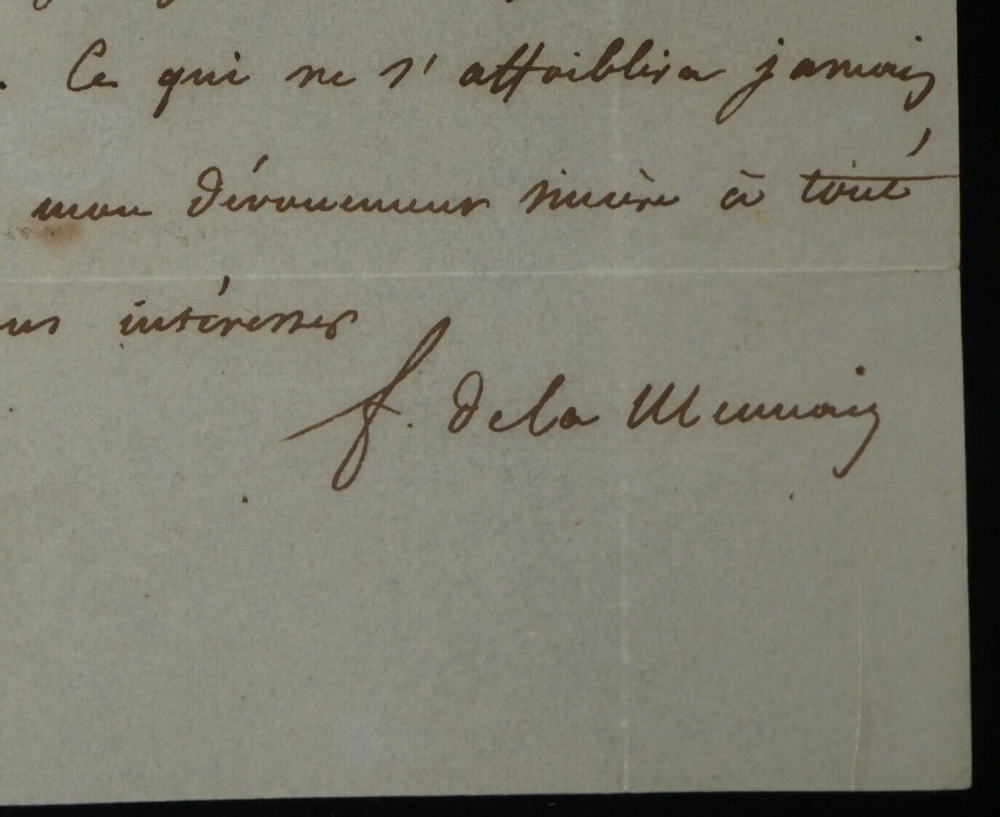 . Ce qui ne s'affoiblira jamais
mon dévouement sincère à tout
ous intéresser
f. de la Mennais